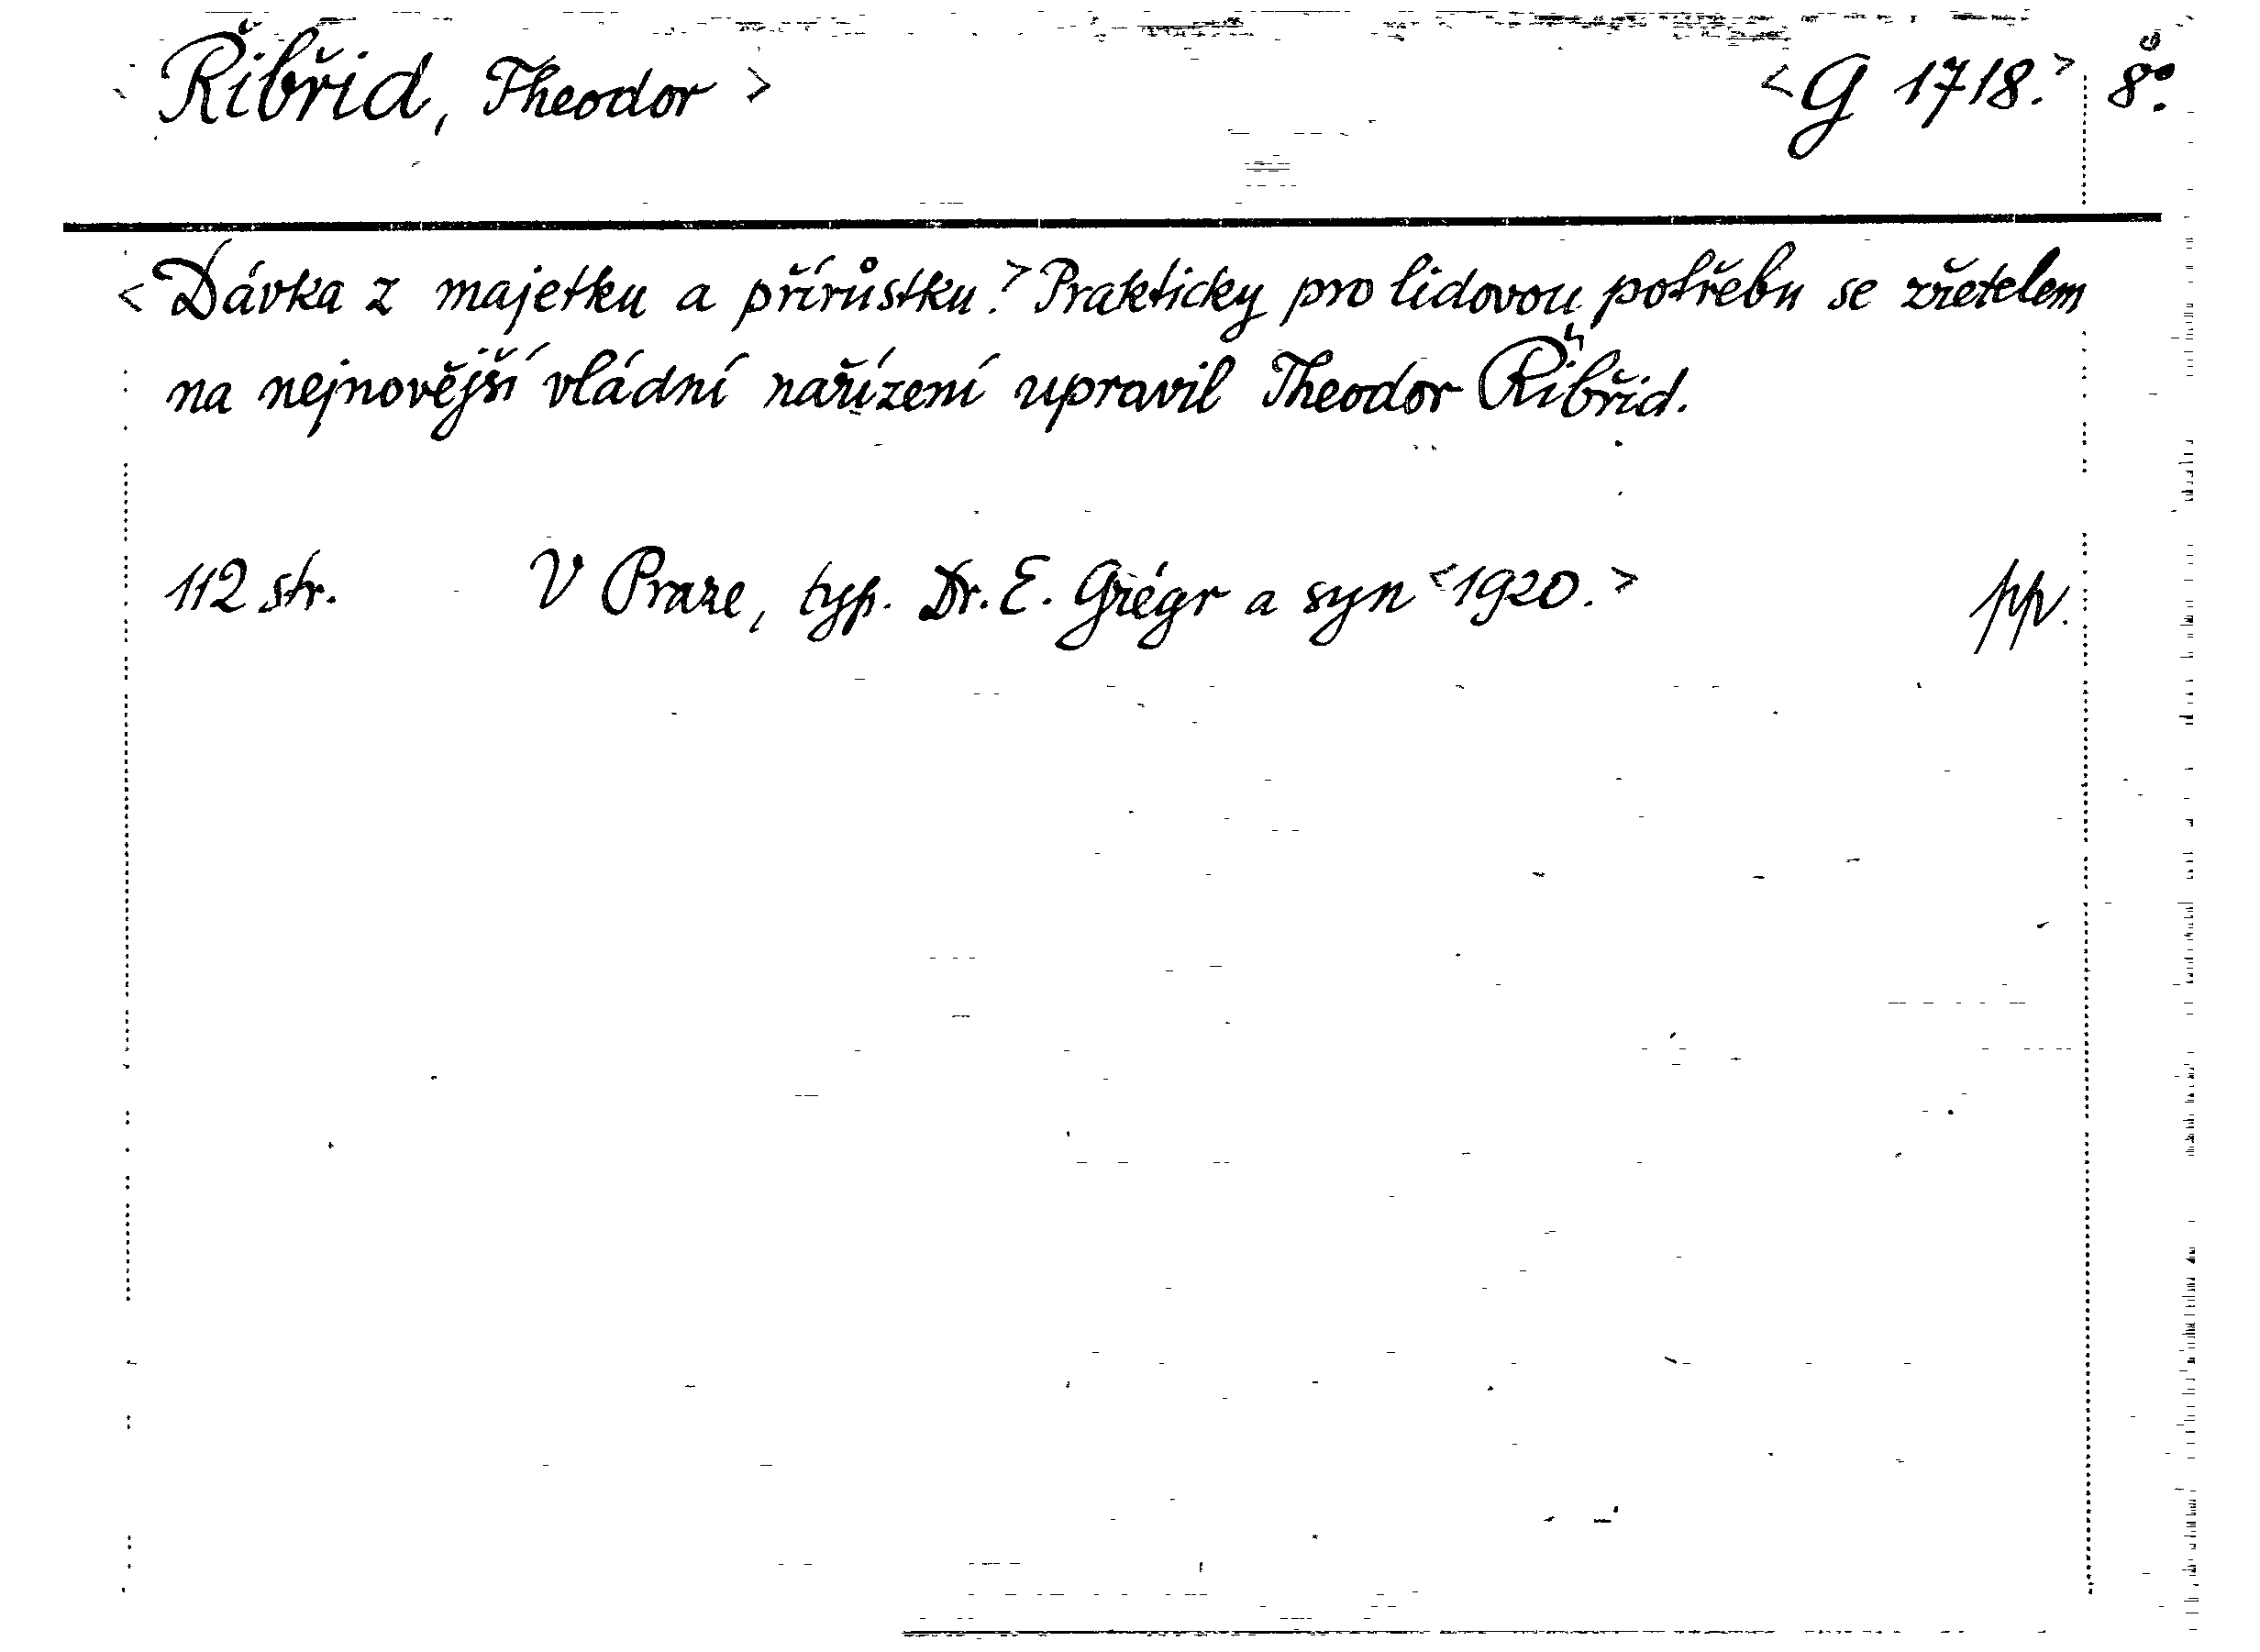 Řibřid, Theodor > <G 1718.> 8°.
<Dávka z majetku a přírůstku.> Prakticky pro lidovou potřebu se zřetelem
na nejnovější vládní nařízení upravil Theodor Řibřid.
112 str. V Praze, typ. Dr. E. Grégr a syn <1920.> pp.